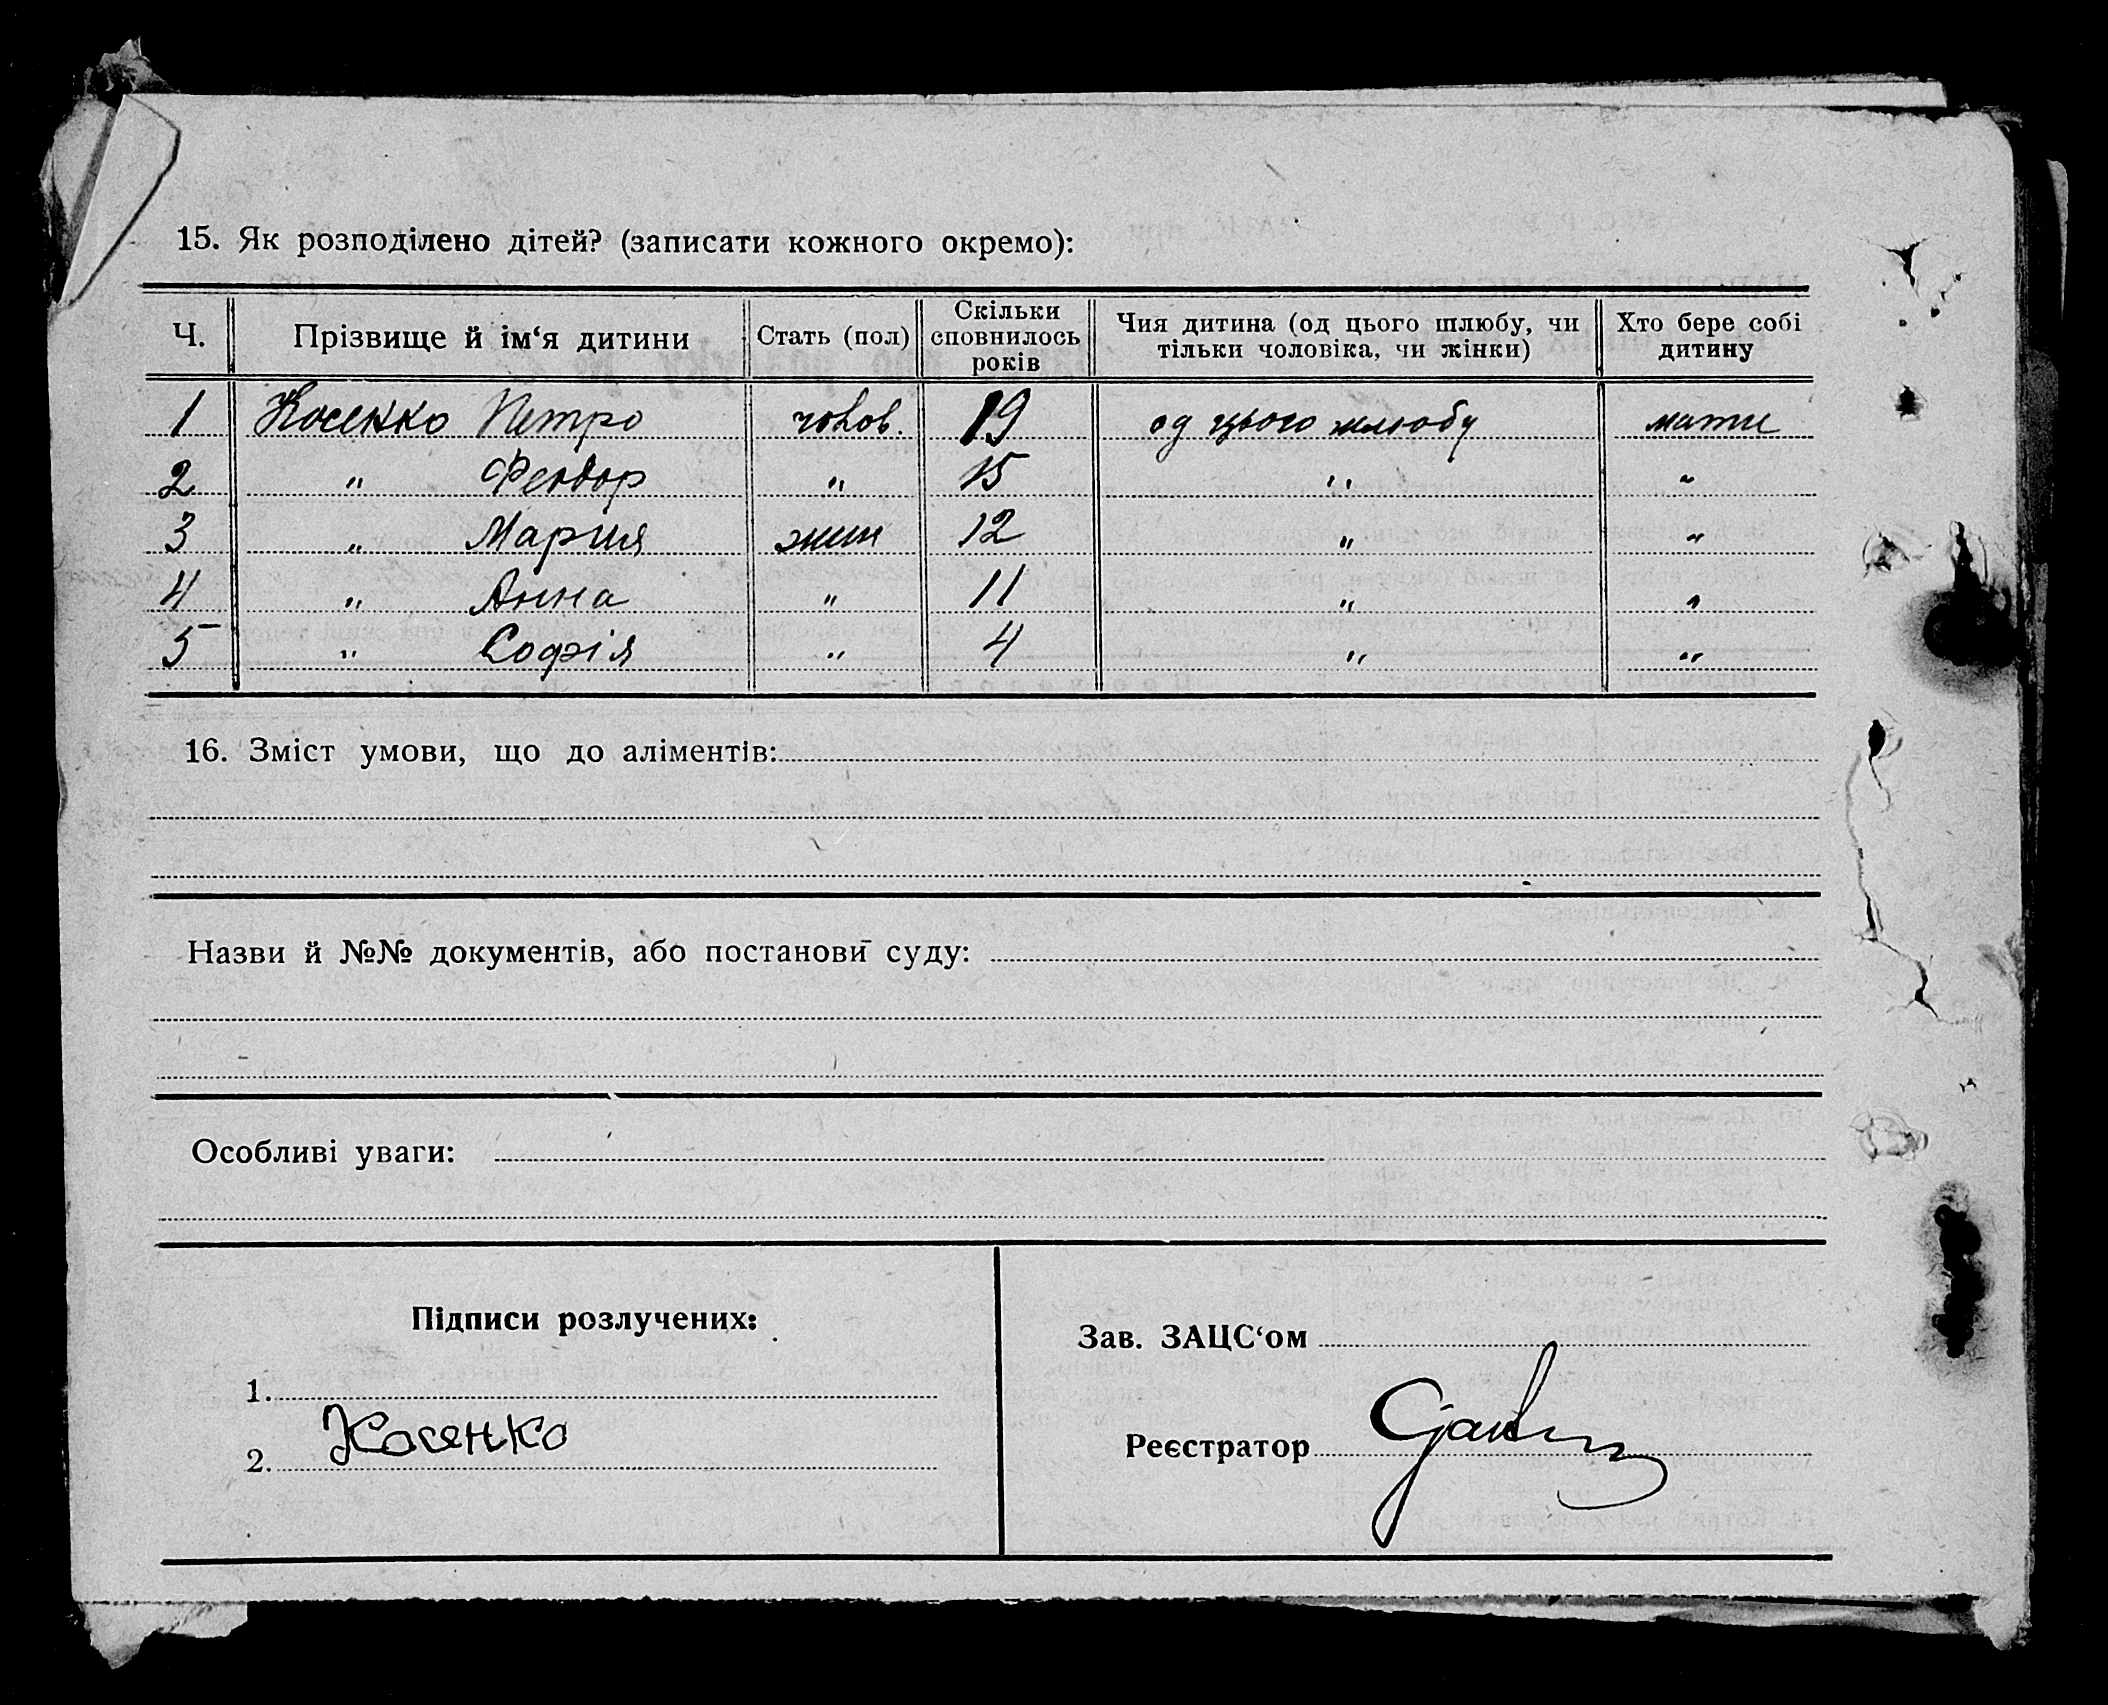 15. Як розподілено дітей? (записати кожного окремо):
Ч. Прізвище й ім‘я дитини Стать (пол) Скільки сповнилось років Чия дитина (од цього шлюбу, чи тільки чоловіка, чи жінки) Хто бере собі дитину
1 Косенко Петро чолов. 19 од цього шлюбу мати
2 " Феодор " 15 " "
3 " Мария жин 12 " "
4 " Анна " 11 " "
5 " Софія " 4 " "
16. Зміст умови, що до аліментів:
Назви й №№ документів, або постанови суду:
Особливі уваги:
Підписи розлучених:
1.
2. Косенко
Зав. ЗАЦС‘ом
Реєстратор